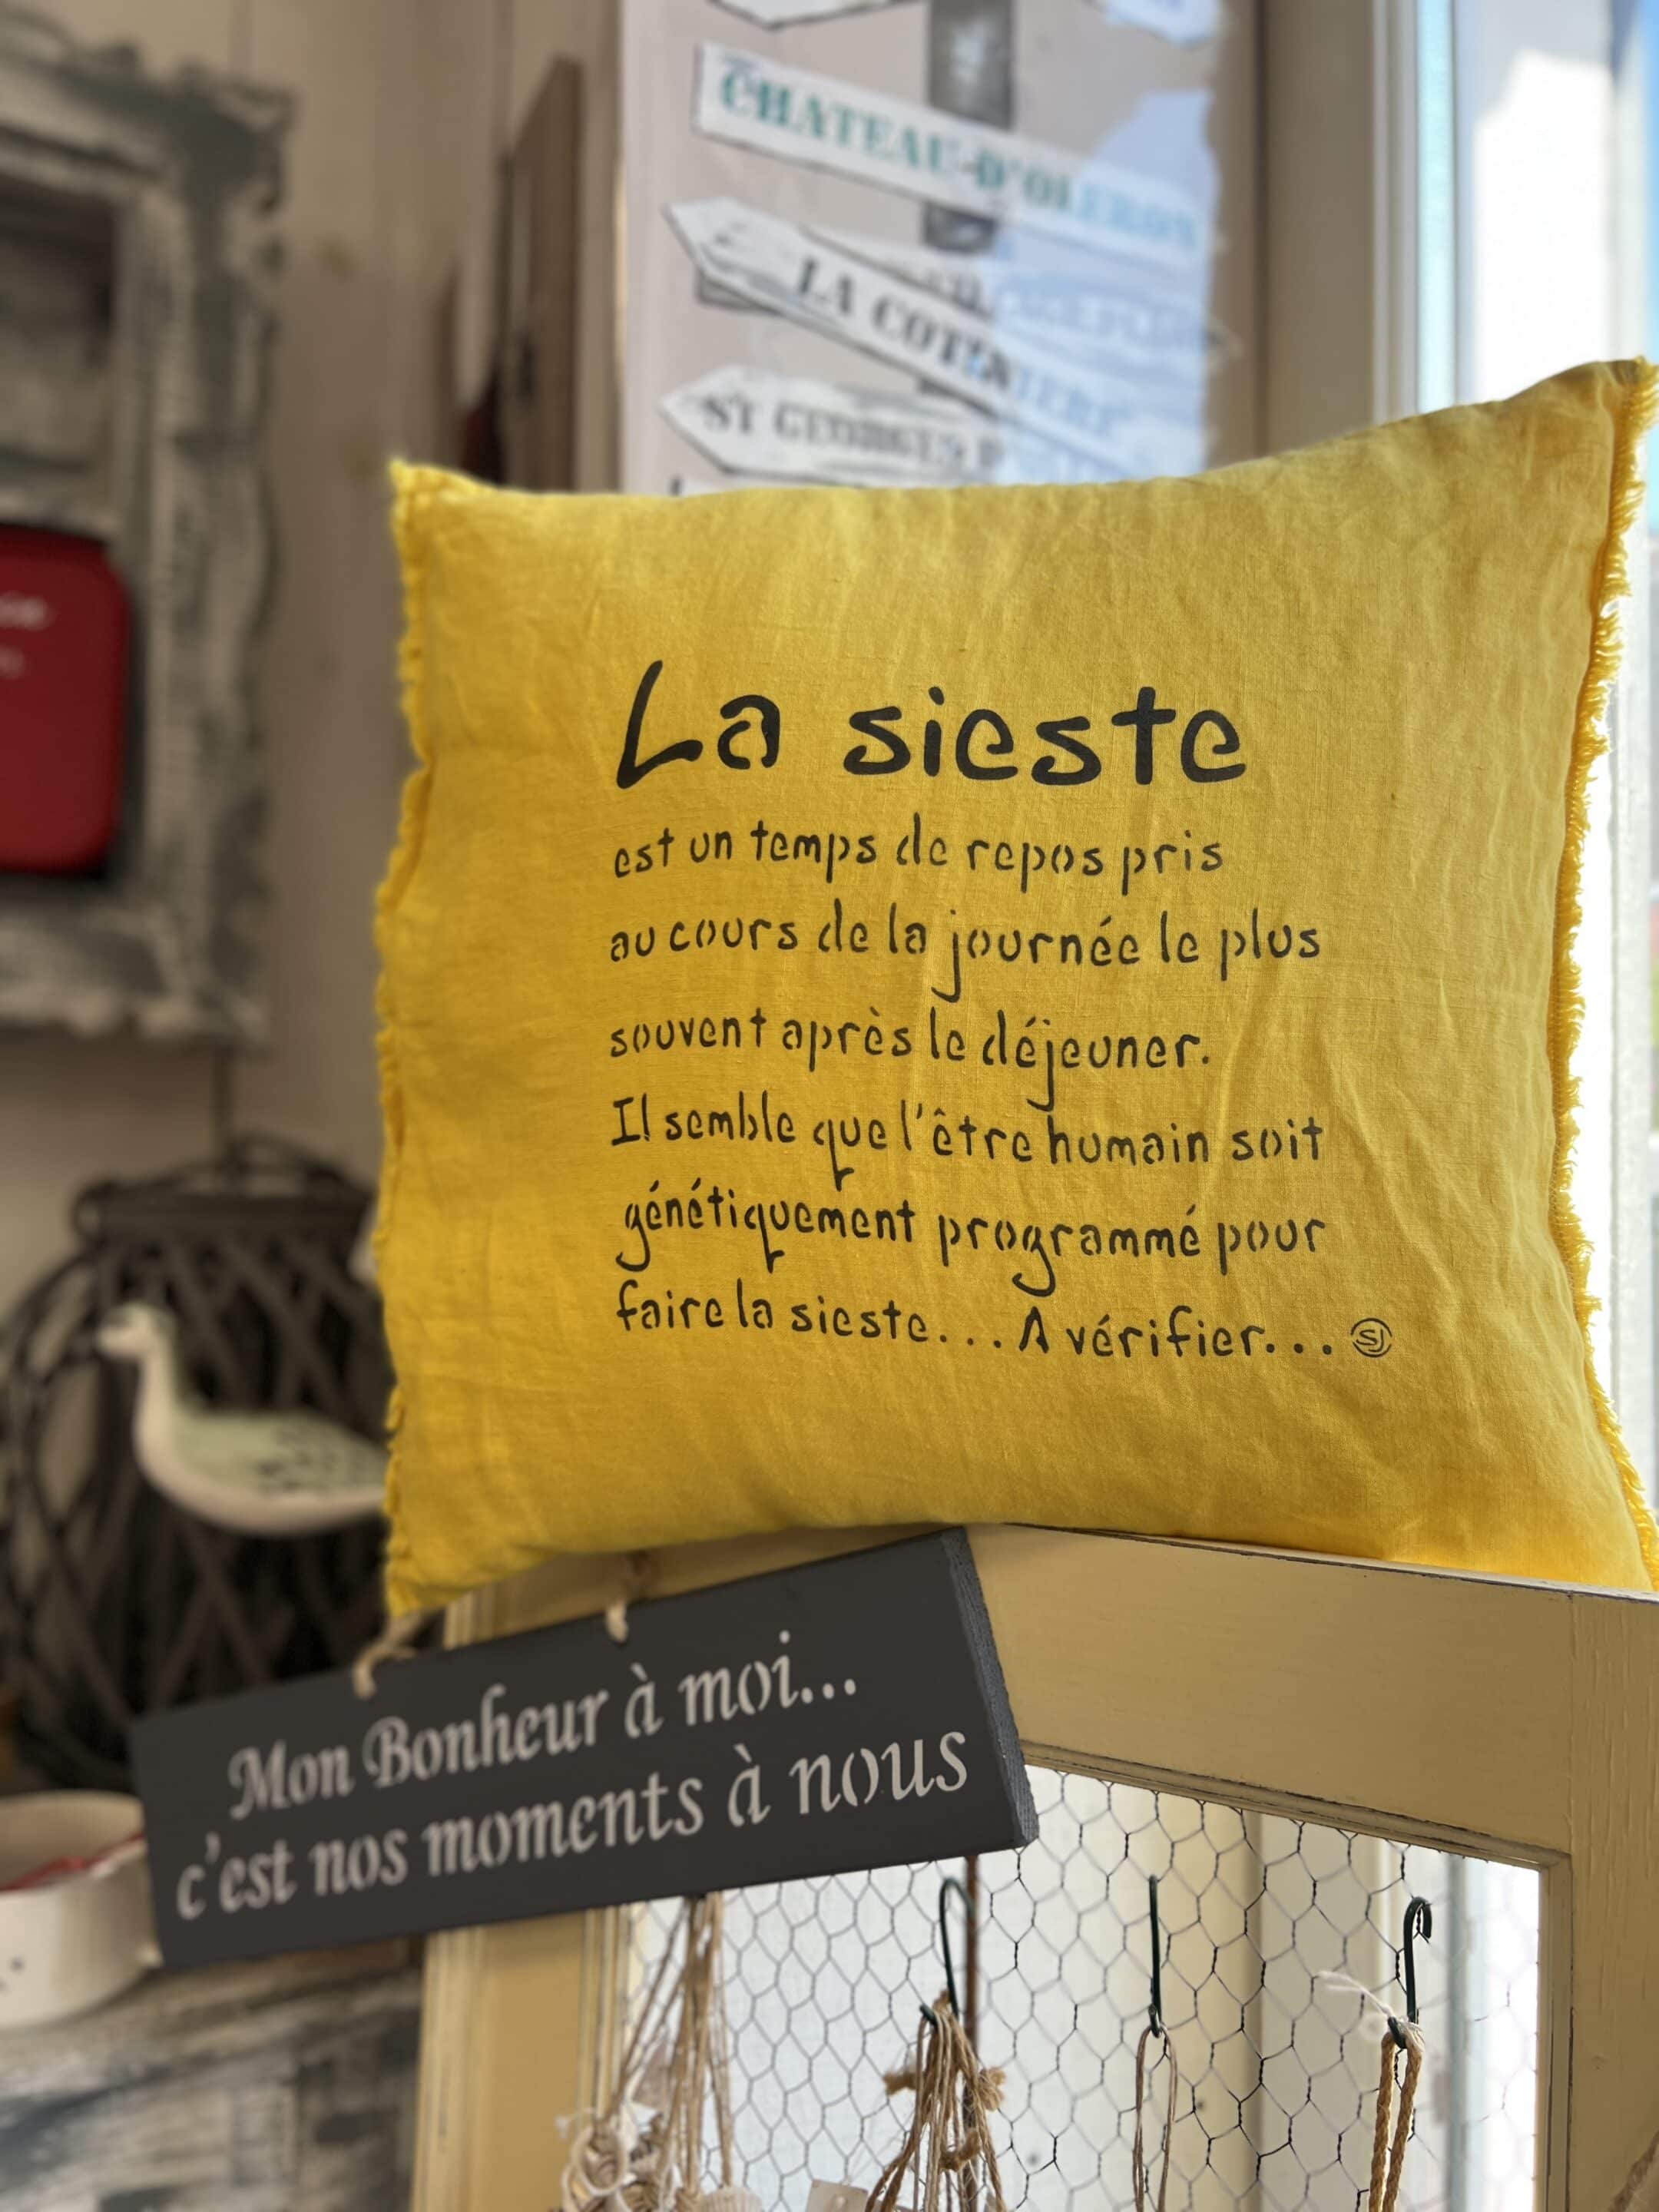 CHATEAU-D'OLERON
LA COTINIERE
ST GEORGES
La sieste
est un temps de repos pris
au cours de la journée le plus
souvent après le déjeuner.
Il semble que l'être humain soit
génétiquement programmé pour
faire la sieste... A vérifier... SJ
Mon Bonheur à moi...
c'est nos moments à nous